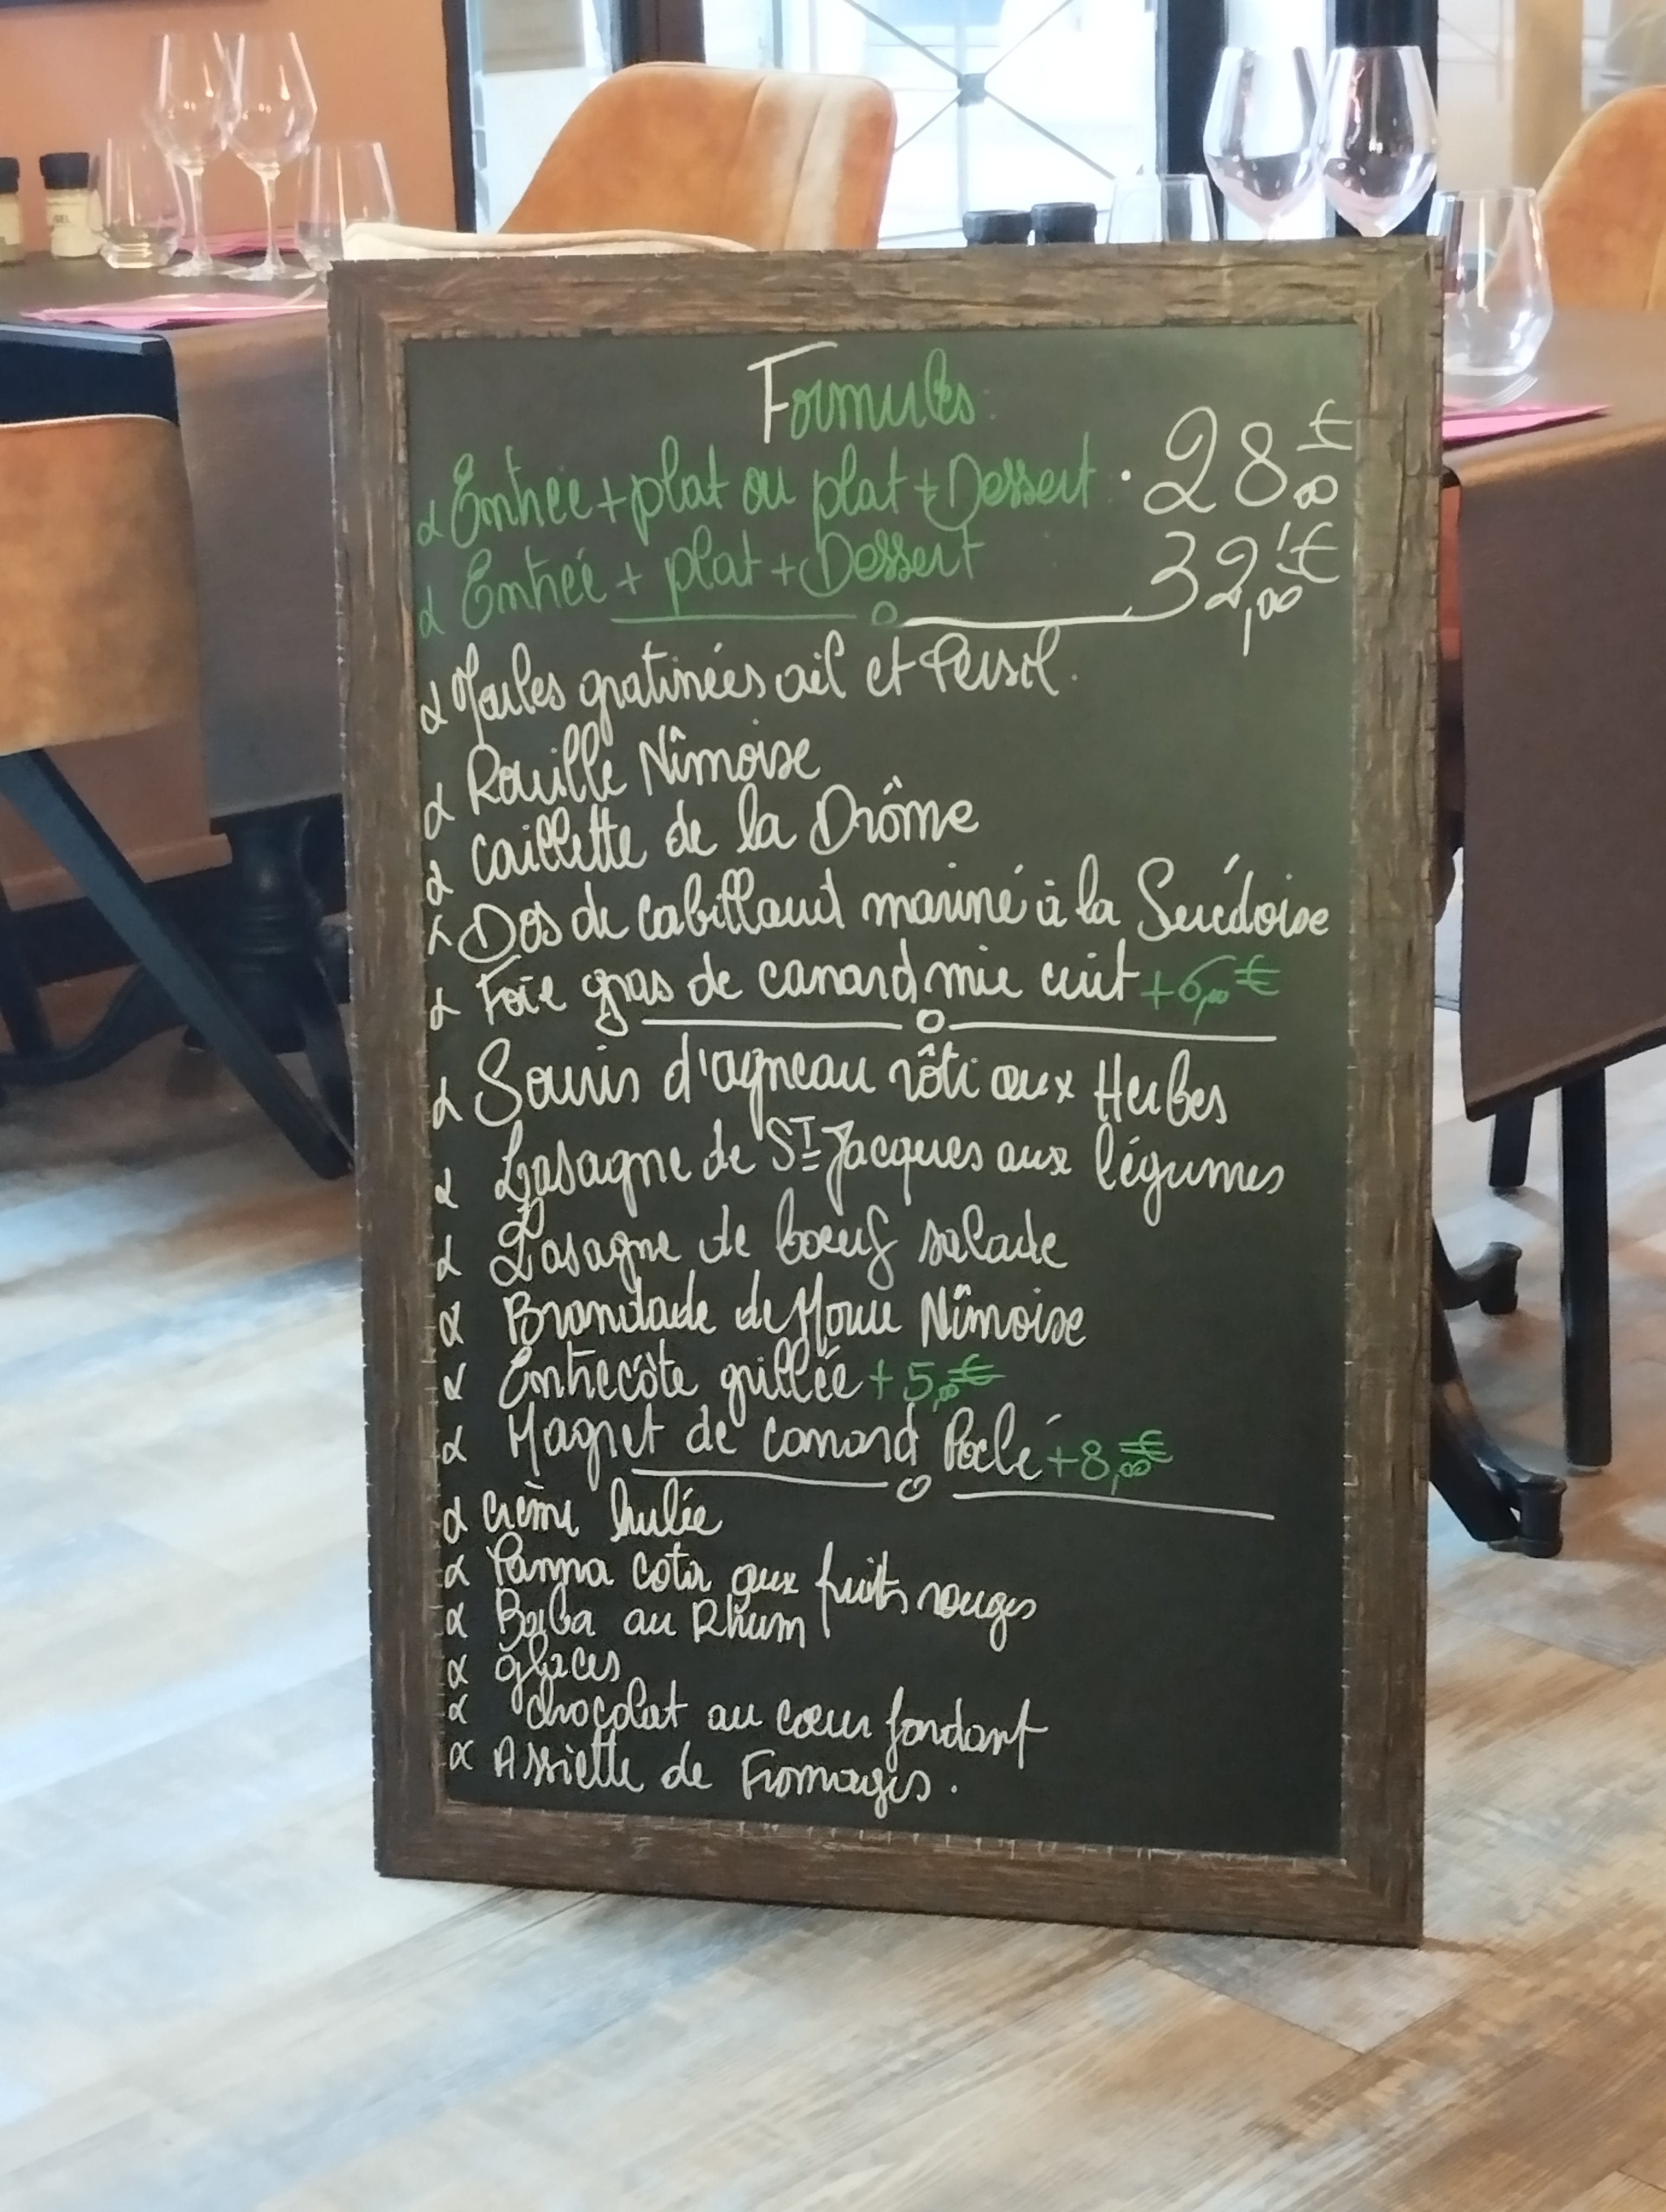 Formules:
Entrée + plat ou plat + Dessert. 28,00€
Entrée + plat + Dessert 32,00€
Moules gratinées ail et Persil.
Rouille Nîmoise
Caillette de la Drôme
Dos de Cabillaud mariné à la Suédoise
Foie gras de canard mie cuit +6,00€
Souris d'agneau rôti aux Herbes
Lasagne de ST Jacques aux légumes
Lasagne de boeuf salade
Brandade de Morue Nîmoise
Entrecôte grillée +5,00€
Magret de canard Poelé +8,00€
Crème brulée
Panna cota aux fruits rouges
Baba au Rhum
glaces
chocolat au cœur fondant
Assiette de Fromages.